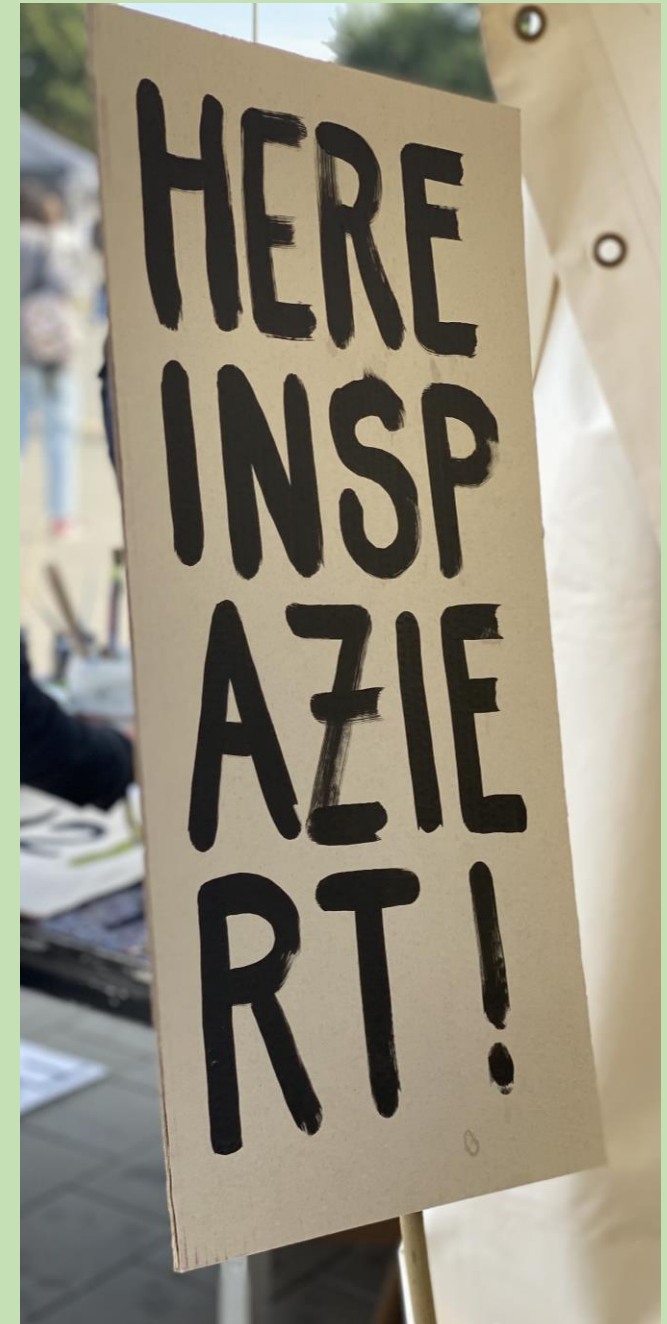 HERE
INSP
AZIE
RT!